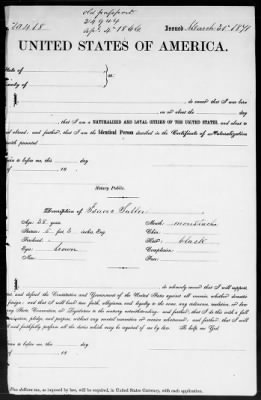 old passport
24944
Issued March 31" 1871
Apr 4" 1866
UNITED STATES OF AMERICA.
State of
County of
ss:
I, do swear that I was born
on or about the day
; that I am a NATURALIZED AND LOYAL CITIZEN OF THE UNITED STATES, and about to
travel abroad; and further, that I am the Identical Person described in the Certificate of Naturalization
herewith presented
Sworn to before me, this day
of 18
Notary Public.
Description of Isaac
Age: 38 years Mouth: moustache
Stature: 5 feet 5 inches, Eng. Chin:
Forehead: Hair: black
Eyes: brown Complexion:
Nose: Face:
I, do solemnly swear that I will support,
protect, and defend the Constitution and Government of the United States against all enemies, whether domestic
or foreign; and that I will bear true faith, allegiance, and loyalty to the same, any ordinance, resolution, or law
of any State Convention or Legislature to the contrary notwithstanding; and further, that I do this with a full
determination, pledge, and purpose, without any mental reservation or evasion whatsoever; and further, that I will
well and faithfully perform all the duties which may be required of me by law. So help me God.
Sworn to before me, this day
of 18
Five dollars tax, as imposed by law, will be required, in United States Currency, with each application.